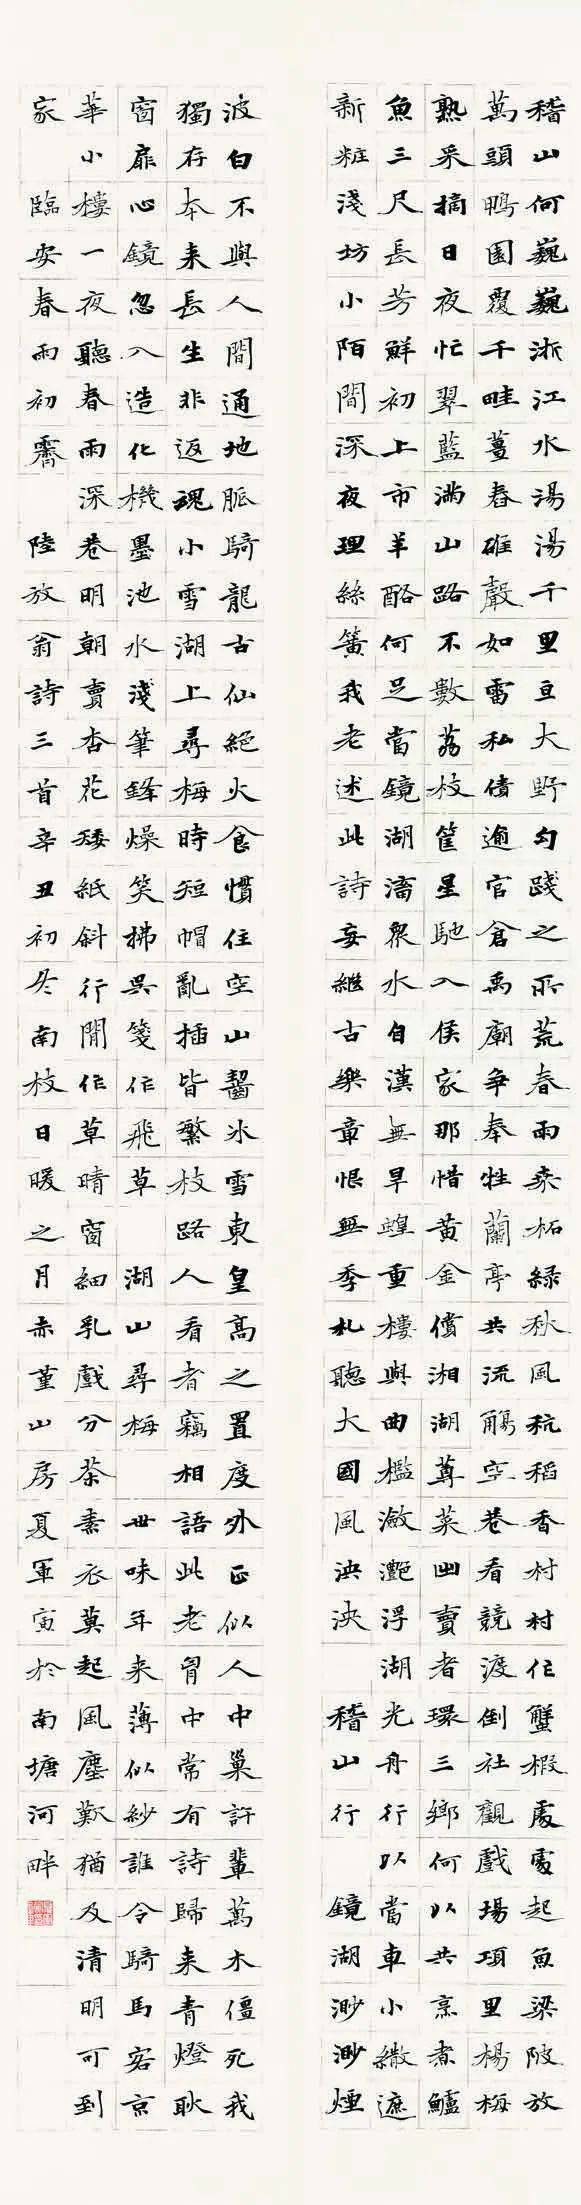 稽山何巍巍浙江水湯湯千里亘大野勾踐之所荒春雨桑柘緑秋風秔稻香村村作蟹椵處處起魚梁陂放
萬頭鴨園覆千畦薑舂碓聲如雷私債逾官倉禹廟爭奉牲蘭亭共流觴空巷看競渡倒社觀戲場項里楊梅
熟采摘日夜忙翠藍滿山路不數荔枝筐星馳入侯家那惜黃金償湘湖蓴菜出賣者環三鄉何以共烹煮鱸
魚三尺長芳鮮初上市羊酪何足當鏡湖滀衆水自漢無旱蝗重樓與曲檻瀲灧浮湖光舟行以當車小繖遮
新粧淺坊小陌間深夜理絲簧我老述此詩妄繼古樂章恨無季札聽大國風泱泱 稽山行 鏡湖渺渺煙
波白不與人間通地脈騎龍古仙絕火食慣住空山齧冰雪東皇高之置度外正似人中巢許輩萬木僵死我
獨存本來長生非返魂小雪湖上尋梅時短帽亂插皆繁枝路人看者竊相語此老胷中常有詩歸來青燈耿
窗扉心鏡忽入造化機墨池水淺筆鋒燥笑拂吳箋作飛草 湖山尋梅 世味年来薄似紗誰令騎馬客京
華小樓一夜聽春雨深巷明朝賣杏花矮紙斜行閒作草晴窗細乳戲分茶素衣莫起風塵歎猶及清明可到
家 臨安春雨初霽 陸放翁詩三首辛丑初冬南枝日暖之月赤堇山房夏軍寅於南塘河畔